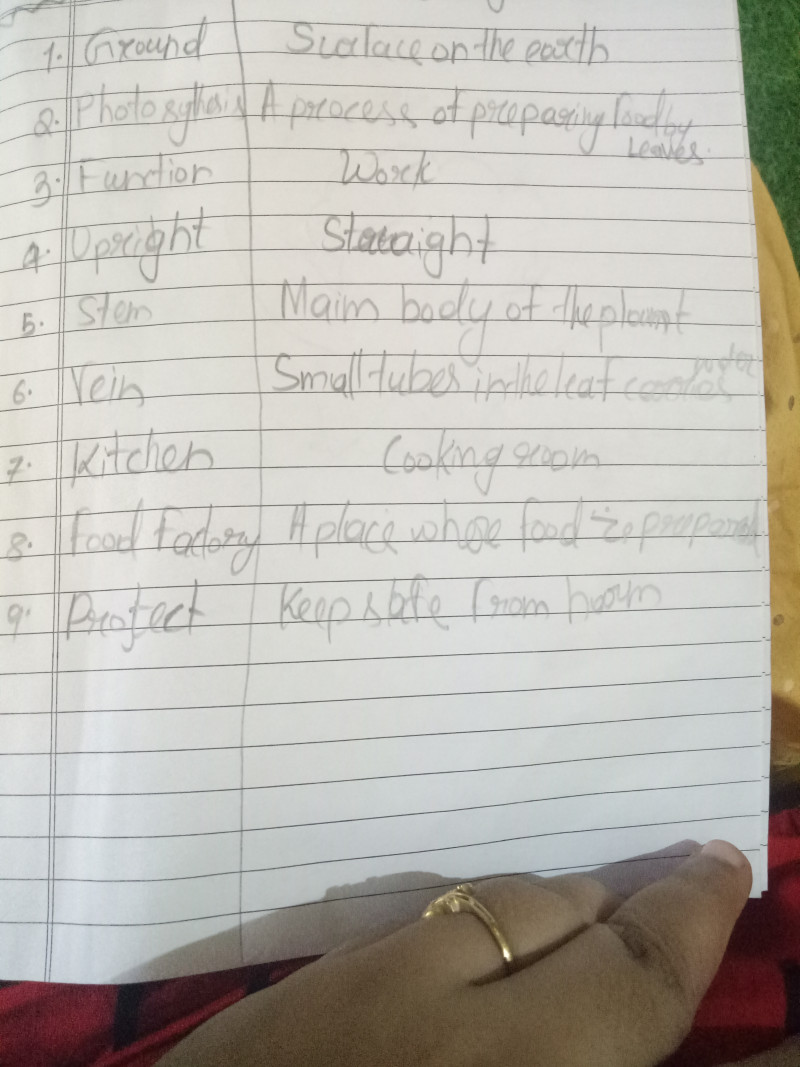 1. Ground Surface on the earth
2. Photosythesis A process of preparing food by
Leaves.
3. Function Work
4. Upright Straight
5. Stem Maim body of the plant
6. Vein Small tubes in the leaf carries water
7. Kitchen Cooking room
8. Food Factory A place whose food is prepared
9. Protect Keep safe from harm